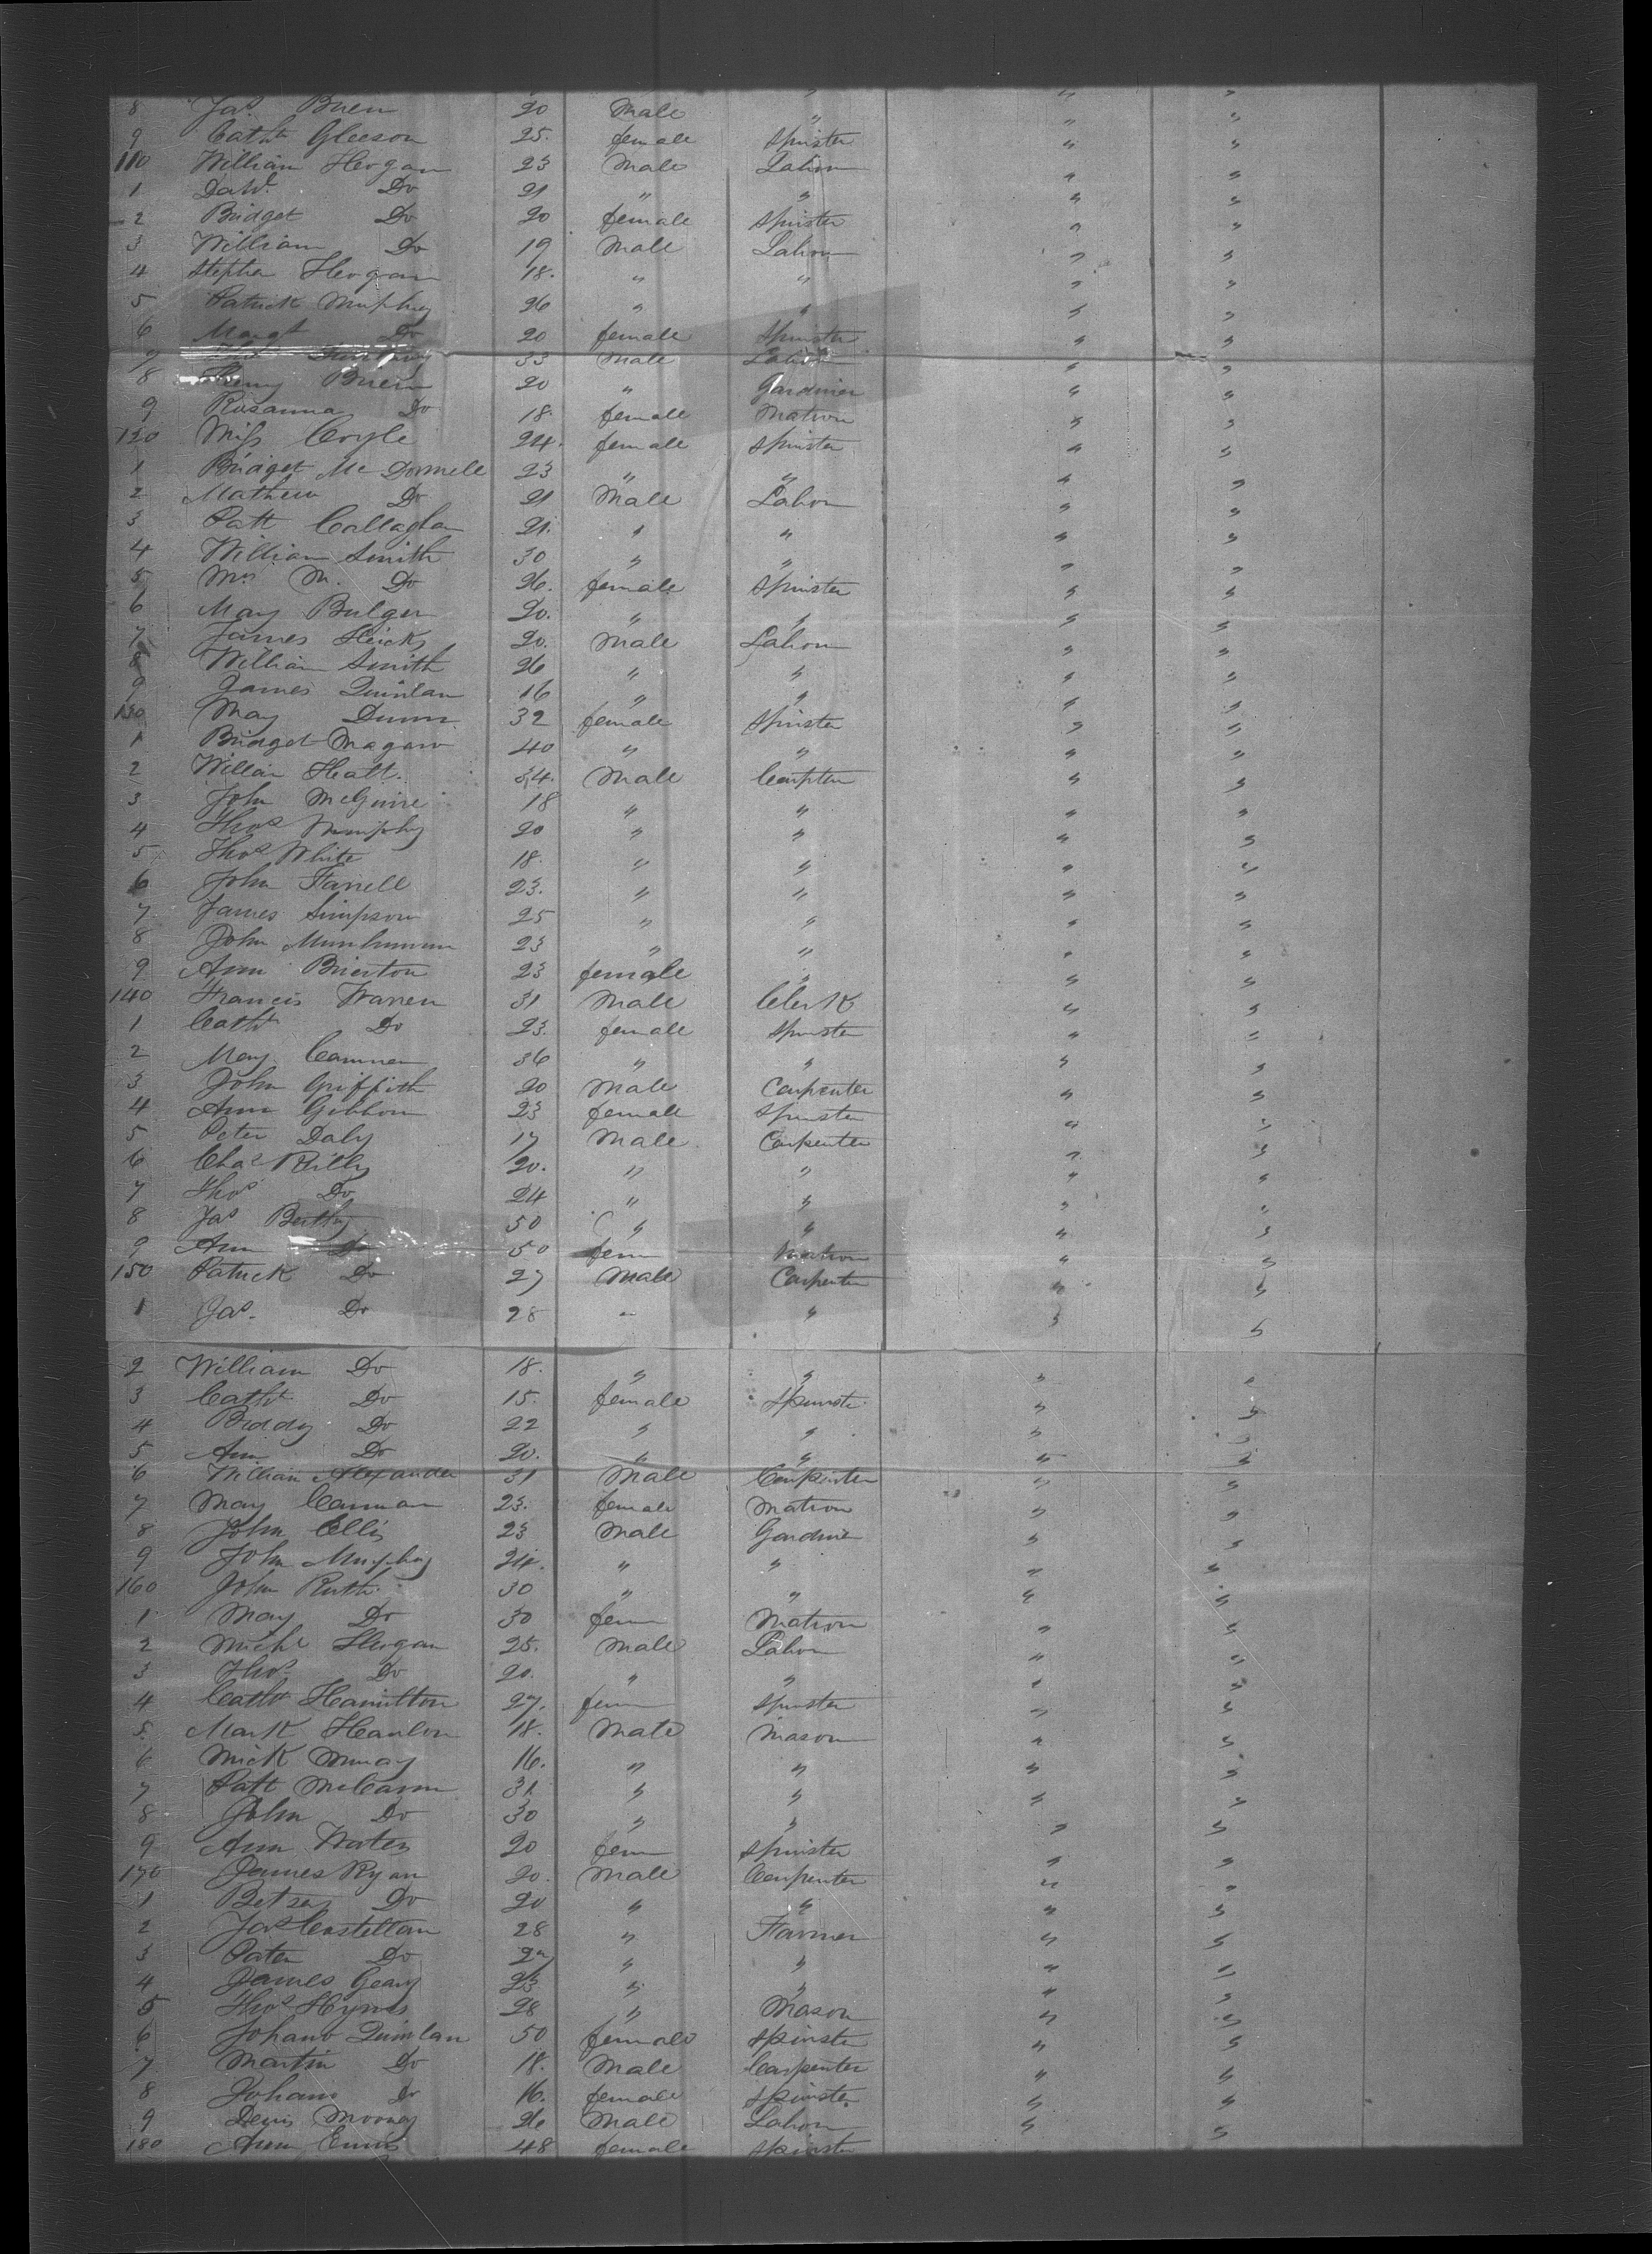 8 Jas Brien 20 Male " " "
9 Cath Gleeson 25. female Spinster " "
110 William Hogan 23 Male Labour " "
1 Do 21 " " " "
2 Bridget Do 20 female Spinster " "
3 William Do 19 Male Labour " "
4 Stephen Hogan 18. " " " "
5 Patrick Murphy 26 " " " "
6 Margt Do 20 female Spinster " "
7 33 Male Labour " "
8 Henry Brien 20 " Gardnier " "
9 Rosanna Do 18. female Matron " "
120 Miss Coyle 24. female Spinster " "
1 Bridget Mc Donnell 23 " " " "
2 Mathew Do 21 Male Labour " "
3 Patt Callaghan 21. " " " "
4 William Smith 30 " " " "
5 Mrs M. Do 26. female Spinster " "
6 Mary Bulger 20. " " " "
7 James Hicks 20. Male Labour " "
8 William Smith 26 " " " "
9 James Quinlan 16 " " " "
130 Mary Dunn 32 female Spinster " "
1 Bridget Magawr 40 " " " "
2 William Hall. 34. Male Carpter " "
3 John McGuire 18 " " " "
4 Thos Murphy 20 " " " "
5 Thos White 18. " " " "
6 John Farrell 23. " " " "
7 James Simpson 25 " " " "
8 John 23 " " " "
9 Ann Brierton 23 female " " "
140 Francis Warren 31 Male Clerk " "
1 Cath Do 23. female Spinster " "
2 Mary 36 " " " "
3 John Griffith 20 Male Carpenter " "
4 Ann Gibbon 23 female Spinster " "
5 Peter Daly 17 Male Carpenter " "
6 Chas Rilly 20. " " " "
7 Thos Do 24 " " " "
8 Jas 50 " " " "
9 Ann Do 50 fem Matron " "
150 Patrick Do 27 Male Carpenter " "
1 Jas. Do 28 " " " "
2 William Do 18. " " " "
3 Cath Do 15. female Spinster " "
4 Biddy Do 22 " " " "
5 Ann Do 20. " " " "
6 William Alexander 31 Male Carpenter " "
7 Mary Cannan 23. female Matron " "
8 John Ellis 23 Male Gardner " "
9 John Murphy 24. " " " "
160 John Ruth 30 " " " "
1 Mary Do 30 fem Matron " "
2 Michl Hogan 25. Male Labour " "
3 Thos Do 20. " " " "
4 Cath Hamilton 27. fem Spinster " "
5 Mark Hanlon 18. Male Mason " "
6 Mick Murray 16. " " " "
7 Patt McCann 31 " " " "
8 John Do 30 " " " "
9 Ann Waters 20 fem Spinster " "
170 James Ryan 20. Male Carpenter " "
1 Betsey Do 20 " " " "
2 Jas Castellan 28 " Farmer " "
3 Peter Do 27 " " " "
4 James Geary 23 " " " "
5 Thos Hynes 28 " Mason " "
6 Johano Quinlan 50 female Spinster " "
7 Martin Do 18. Male Carpenter " "
8 Johano Do 16. female Spinster " "
9 Denis Mooney 26 Male Labour " "
180 Ann Ennis 48 female Spinster